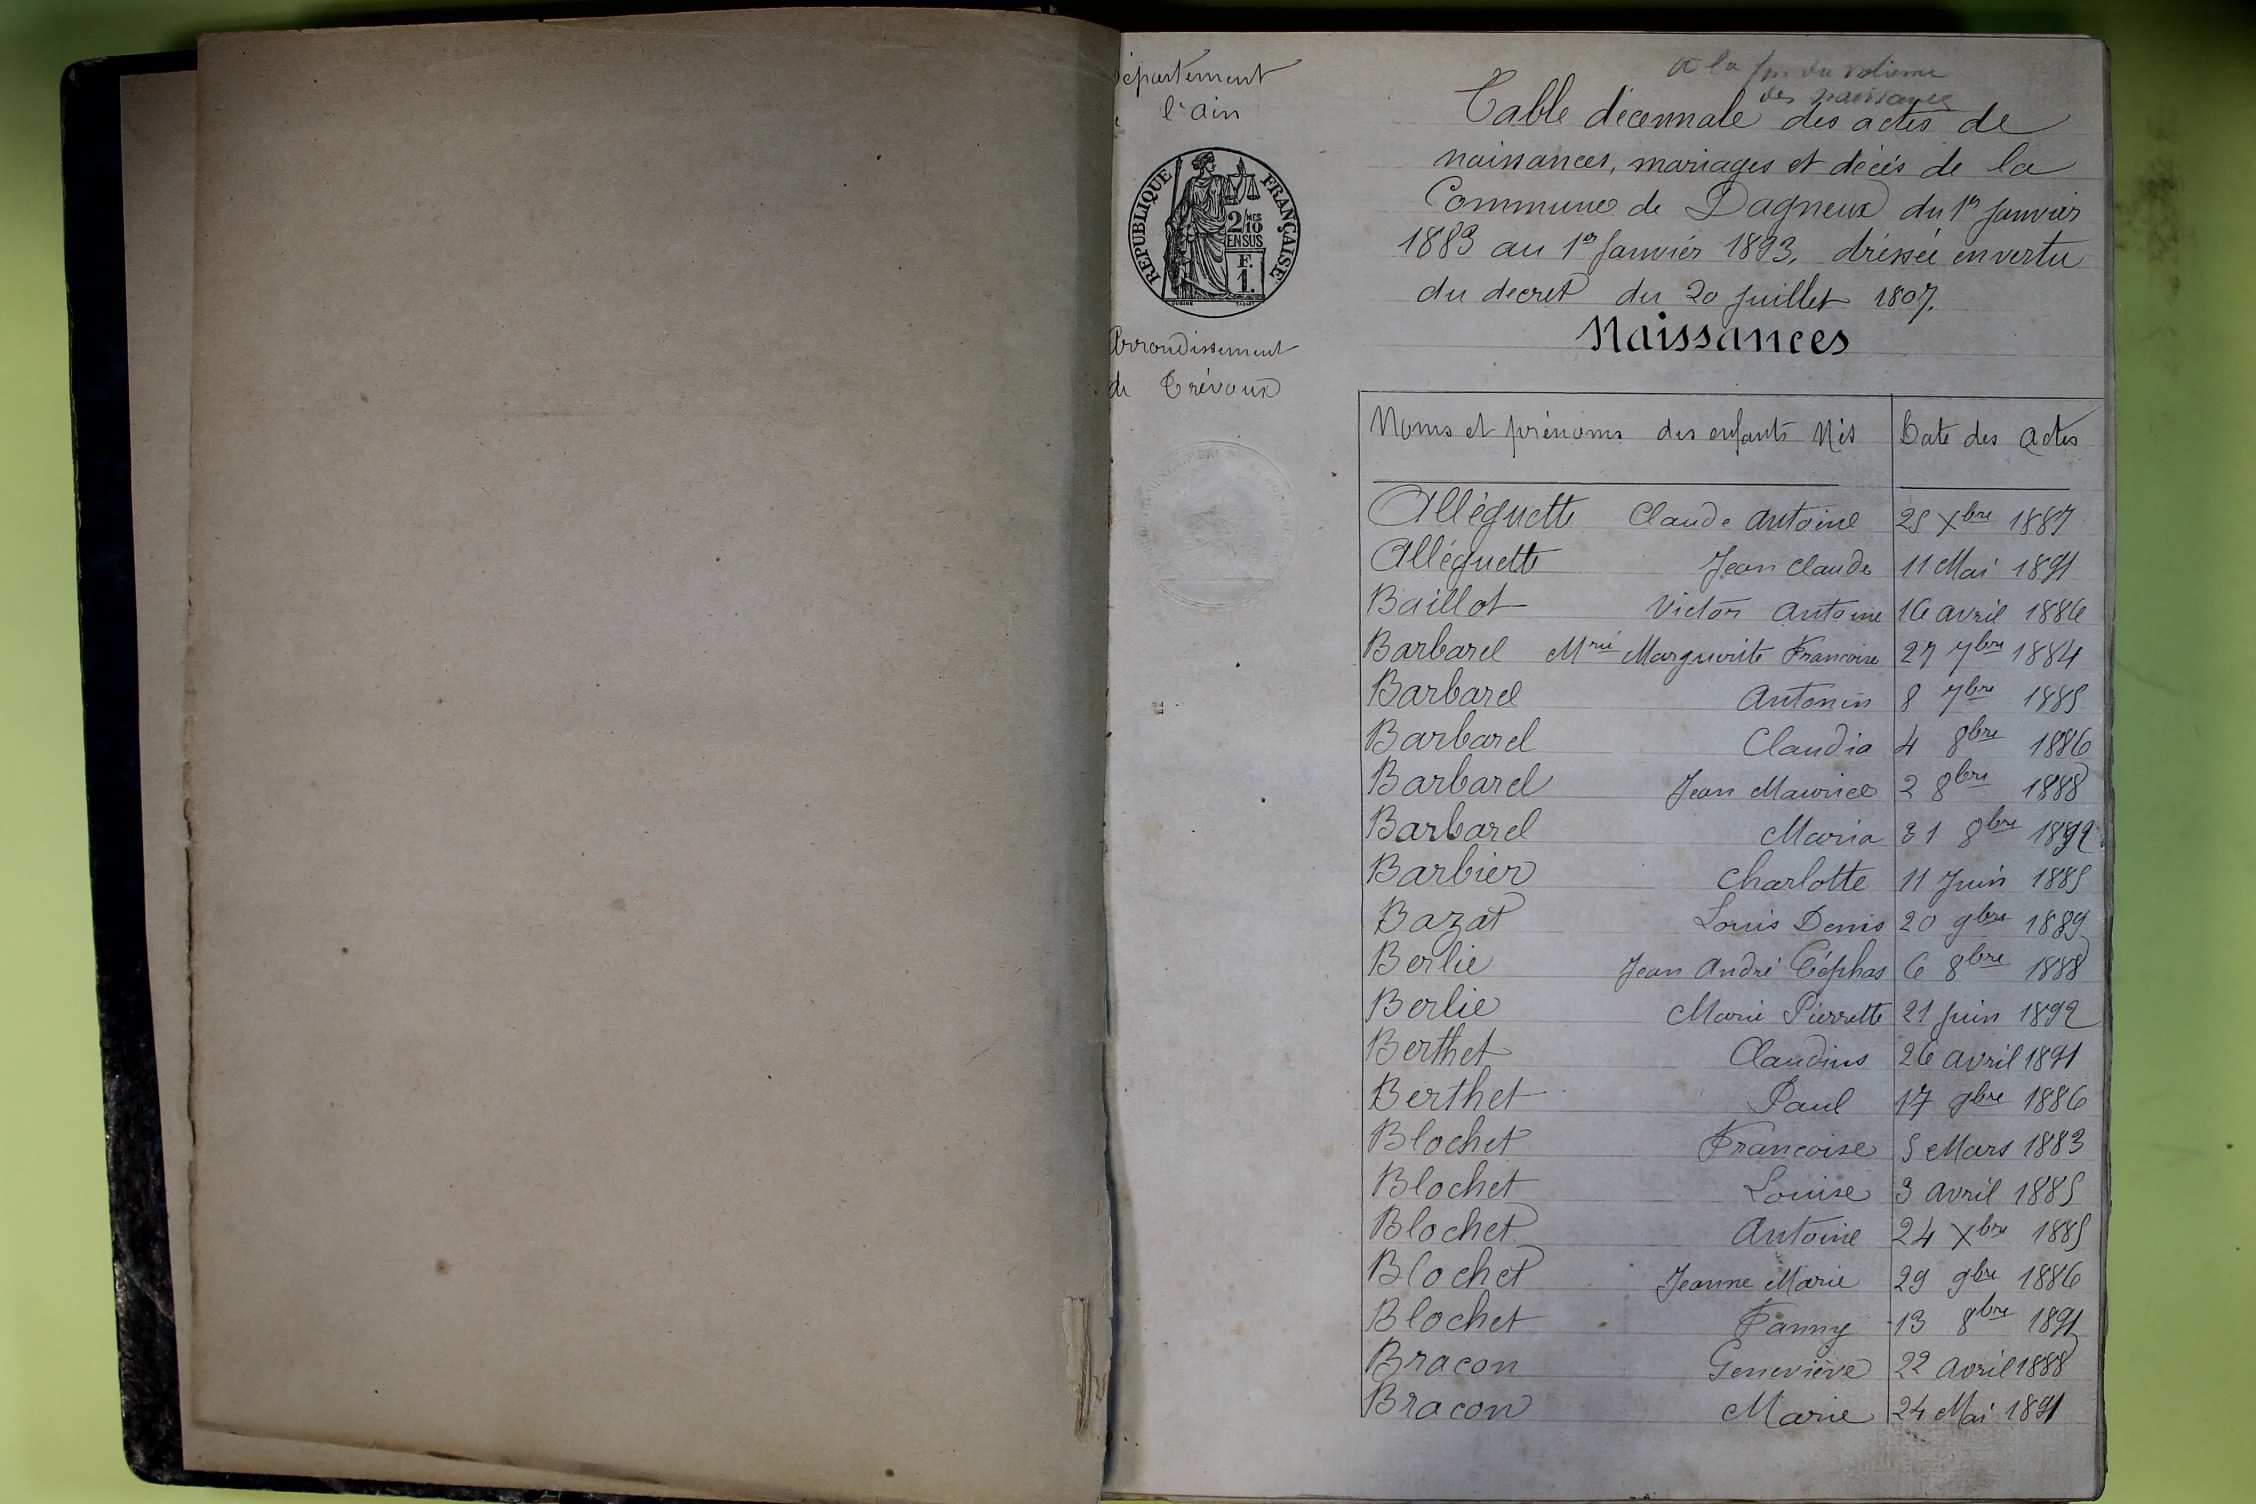 Département
l'Ain
RÉPUBLIQUE FRANÇAISE
2/10 MES
EN SUS
F.
1.
Arrondissement
de Trévoux
a la fin du volume
des naissances
Table décennale des actes de
naissances, mariages et décès de la
Commune de Dagneux du 1er Janvier
1883 au 1er Janvier 1893, dressée en vertu
du decret du 20 Juillet 1807.
Naissances
Noms et prénoms des enfants Nés Date des actes
Alléguette Claude Antoine 25 Xbre 1887
Alléguette Jean Claude 11 Mai 1891
Baillot Victor Antoine 16 avril 1886
Barbarel Mrie Marguerite Francoise 27 7bre 1884
Barbarel Antonin 8 7bre 1885
Barbarel Claudia 4 8bre 1886
Barbarel Jean Maurice 2 8bre 1888
Barbarel Maria 31 8bre 1892
Barbier Charlotte 11 Juin 1885
Bazat Louis Denis 20 9bre 1889
Berlie Jean André Céphas 6 8bre 1888
Berlie Marie Pierrette 21 Juin 1892
Berthet Claudius 26 avril 1891
Berthet Paul 17 9bre 1886
Blochet Francoise 5 Mars 1883
Blochet Louise 3 avril 1885
Blochet Antoine 24 Xbre 1885
Blochet Jeanne Marie 29 9bre 1886
Blochet Fanny 13 8bre 1891
Bracon Geneviève 22 avril 1888
Bracon Marie 24 Mai 1891